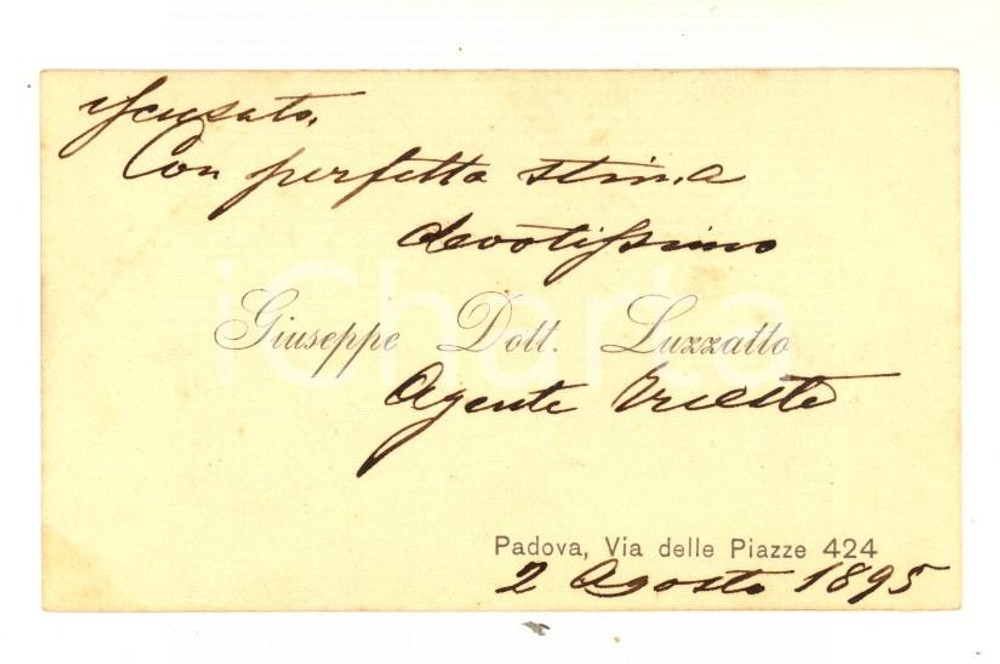 iscusato.
Con perfetta stima
devotissimo
iCharta
Giuseppe Dott. Luzzatto
Agente Trieste
Padova, Via delle Piazze 424
2 Agosto 1895